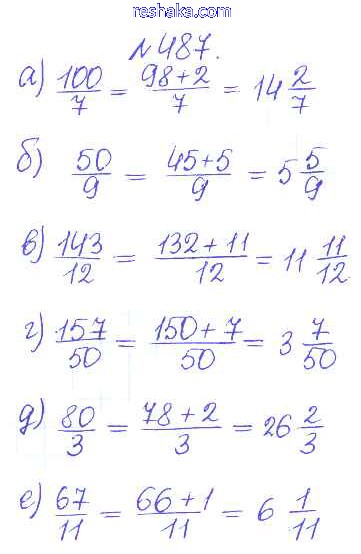 reshaka.com
№487.
а) 100/7 = 98+2/7 = 14 2/7
б) 50/9 = 45+5/9 = 5 5/9
в) 143/12 = 132+11/12 = 11 11/12
г) 157/50 = 150+7/50 = 3 7/50
д) 80/3 = 78+2/3 = 26 2/3
е) 67/11 = 66+1/11 = 6 1/11